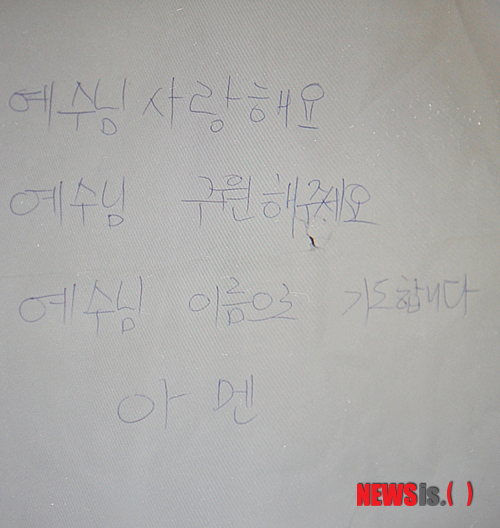 예수님 사랑해요
예수님 구원해주세요
예수님 이름으로 기도합니다
아멘
NEWSis.( )